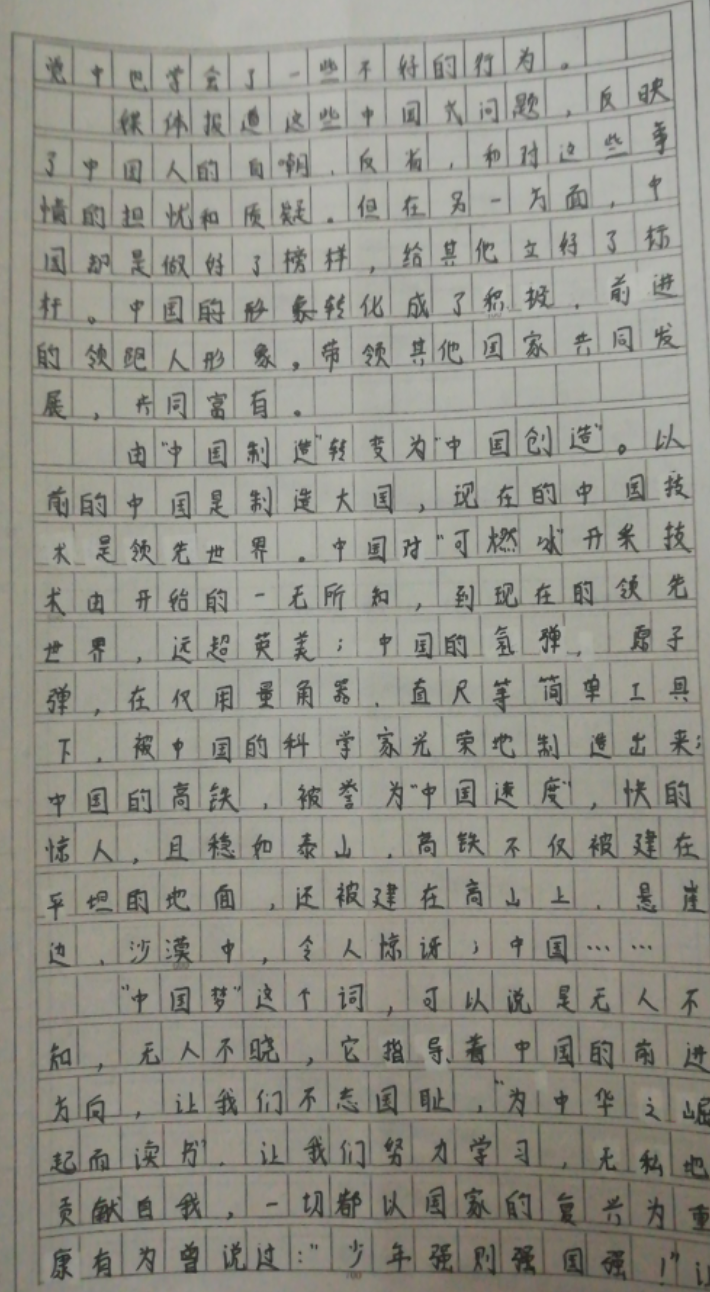 觉中也学会了一些不好的行为。
媒体报道这些中国式问题，反映
了中国人的自嘲、反省，和对这些事
情的担忧和质疑。但在另一方面，中
国却是做好了榜样，给其他立好了标
杆。中国的形象转化成了积极、前进
的领跑人形象。带领其他国家共同发
展，共同富有。
由"中国制造"转变为"中国创造"。以
前的中国是制造大国，现在的中国技
术是领先世界。中国对"可燃冰"开采技
术由开始的一无所知，到现在的领先
世界，远超英美；中国的氢弹、原子
弹，在仅用量角器、直尺等简单工具
下，被中国的科学家光荣地制造出来；
中国的高铁，被誉为"中国速度"，快的
惊人，且稳如泰山，高铁不仅被建在
平坦的地面，还被建在高山上、悬崖
边、沙漠中，令人惊讶；中国……
"中国梦"这个词，可以说是无人不
知，无人不晓，它指导着中国的前进
方向，让我们不忘国耻，"为中华之崛
起而读书"，让我们努力学习，无私地
贡献自我，一切都以国家的复兴为重
康有为曾说过："少年强则强国强！"